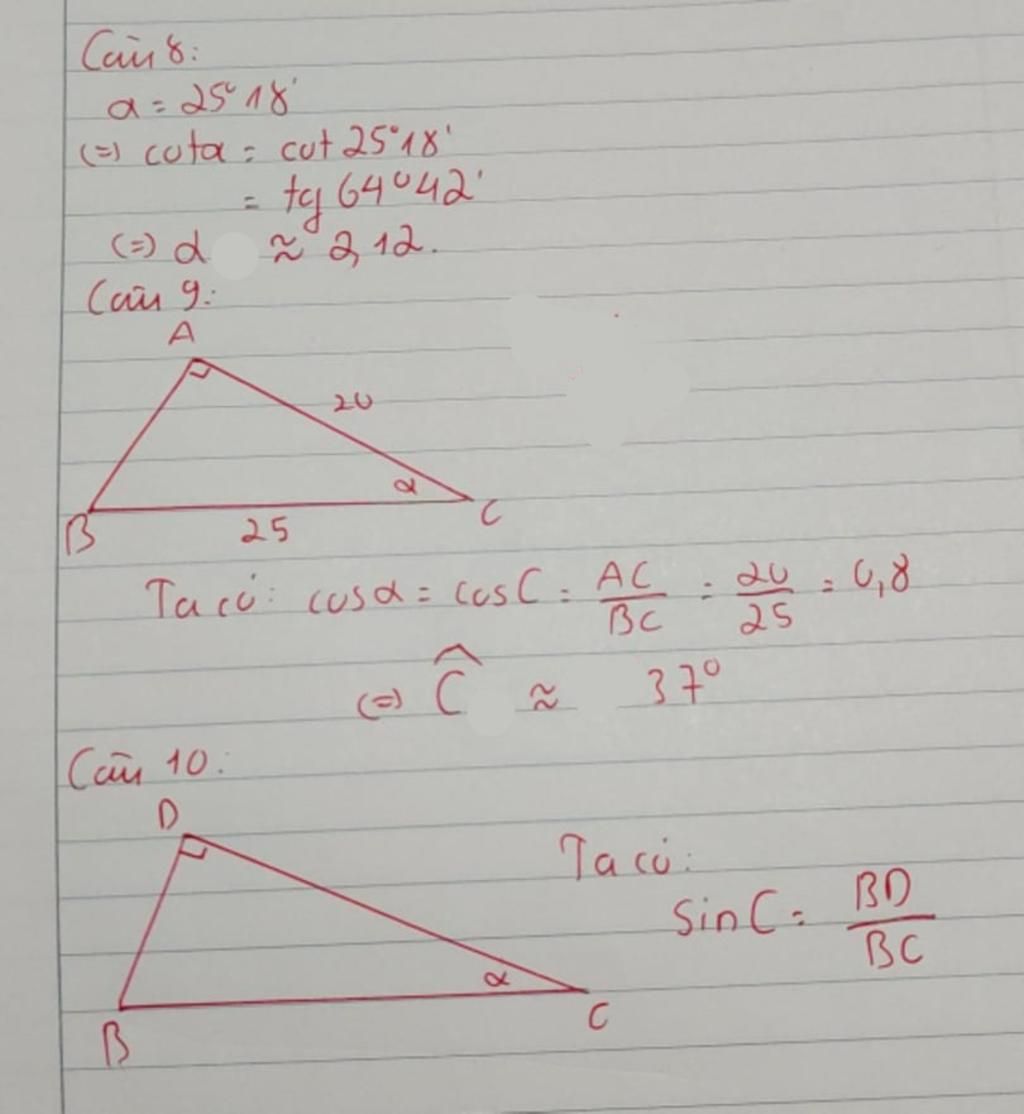 Câu 8:
α = 25°18'
(=) cotα = cot 25°18'
= tg 64°42'
(=) α ≈ 2,12.
Câu 9:
A
20
α
B
25
C
Ta có: cosα = cosC = AC/BC = 20/25 = 0,8
(=) Ĉ ≈ 37°
Câu 10:
D
Ta có:
sinC = BD/BC
α
B
C